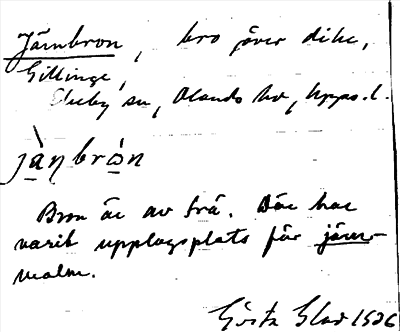 Järnbron, bro över dike,
Gillinge,
Skeby sn, Olands hd, Upps. l.
jàṇbrὼn
Bron är av trä. Där har
varit upplagsplats för järn-
malm.
Gösta 1936